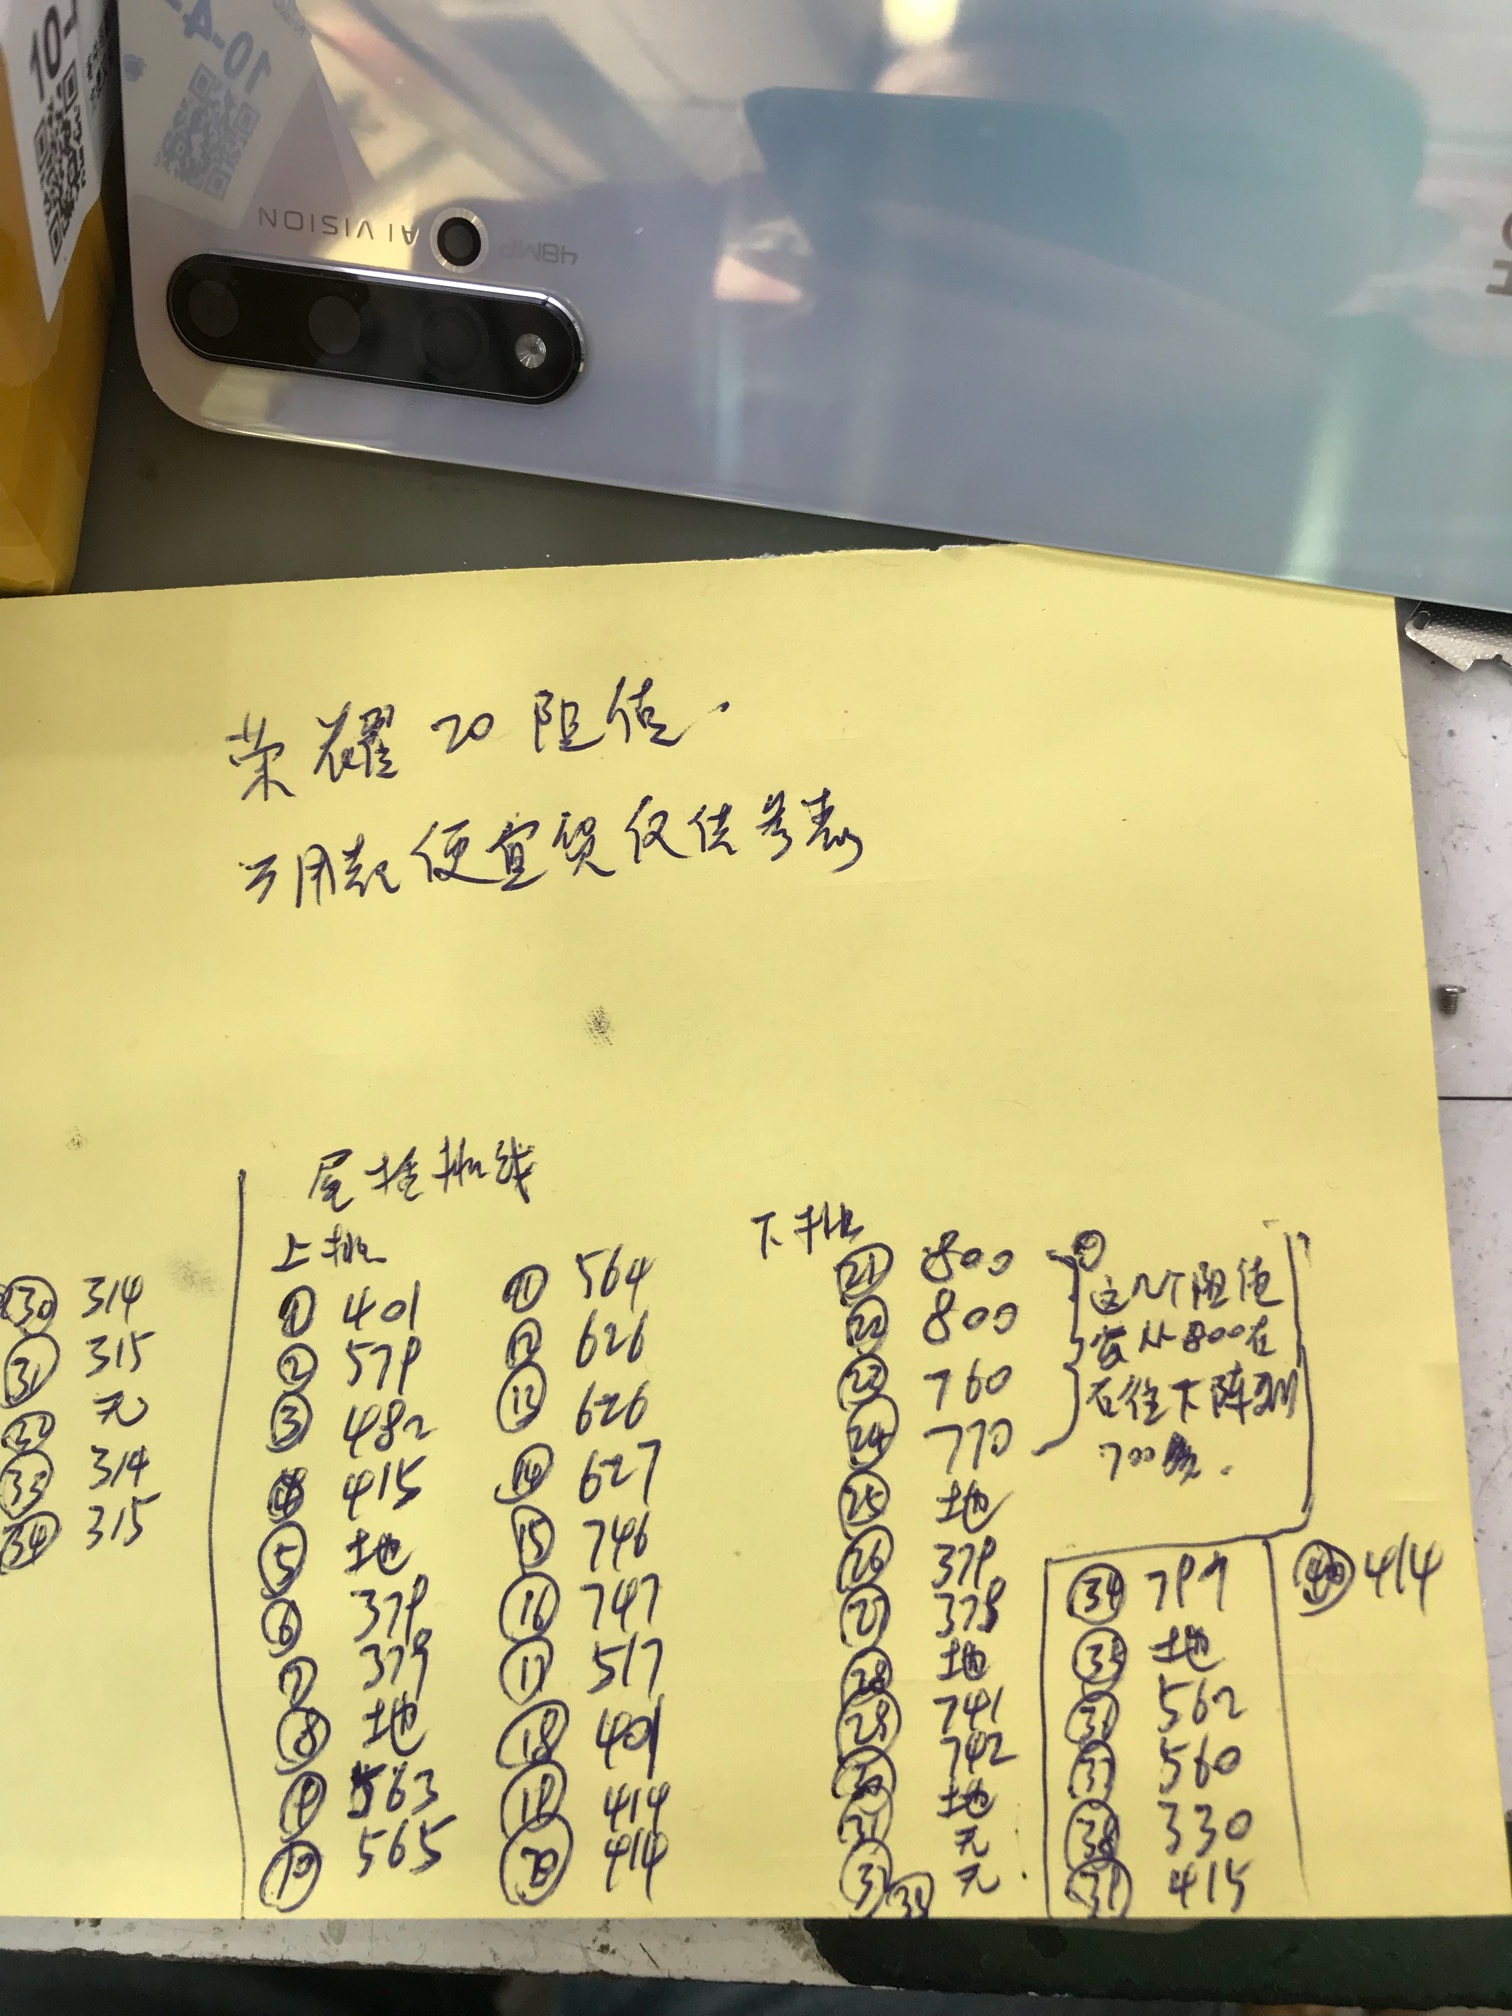 10-4
AI VISION
48MP
荣耀20阻值.
万用表便宜货仅供参考
㉚ 314
㉛ 315
㉜ 无
㉝ 314
㉞ 315
尾插排线
上排
① 401
② 579
③ 482
④ 415
⑤ 地
⑥ 379
⑦ 379
⑧ 地
⑨ 563
⑩ 565
⑪ 564
⑫ 626
⑬ 626
⑭ 627
⑮ 746
⑯ 747
⑰ 517
⑱ 401
⑲ 414
⑳ 414
下排
㉑ 800
㉒ 800
㉓ 760
㉔ 770
㉕ 地
㉖ 379
㉗ 378
㉘ 地
㉙ 741
㉚ 742
㉛ 地
㉜ 无
㉝ 无
这几个阻值
会从800左
右往下降到
700多.
㉞ 797
㉟ 地
㊱ 562
㊲ 560
㊳ 330
㊴ 415
㊵ 414